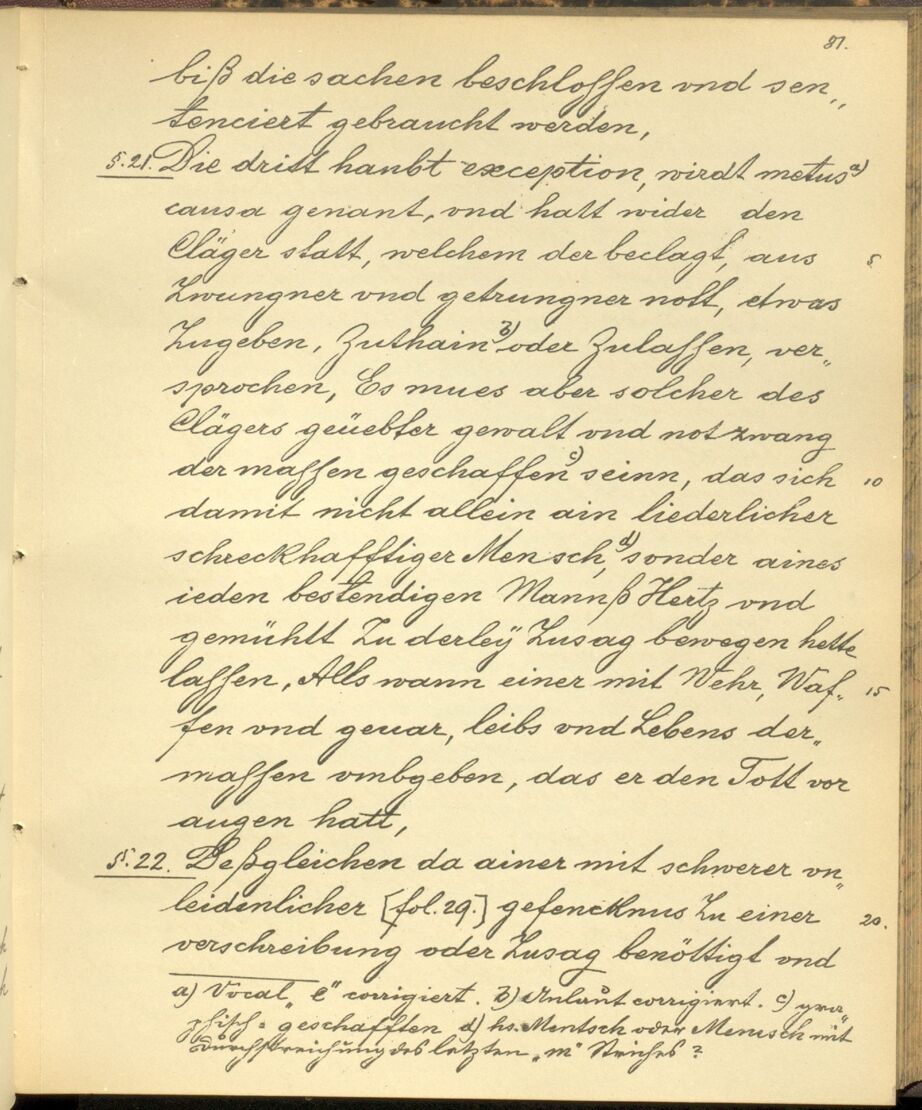 81.
biß die sachen beschlossen vnd sen„
tenciert gebraucht werden,
§.21. Die dritt haubt exception, wirdt metus a)
causa genant, vnd hatt wider den
Cläger statt, welchem der beclagt, aus 5
Zwungner vnd getrungner nott, etwas
Zugeben, Zuthain b) oder Zulassen, ver„
sprochen, Es mues aber solcher des
Clägers geüebter gewalt vnd notzwang
der massen geschaffen c) seinn, das sich 10
damit nicht allein ain liederlicher
schreckhafftiger Mensch, d) sonder aines
ieden bestendigen Mannß Hertz vnd
gemühtt Zu derleÿ Zusag bewegen hette
lassen, Alls wann einer mit Wehr, Waf„ 15
fen vnd geuar, leibs vnd Lebens der„
massen vmbgeben, das er den Tott vor
augen hatt,
§.22. Deßgleichen da ainer mit schwerer vn„
leidenlicher [fol. 29.] gefencknus Zu einer 20.
verschreibung oder Zusag benöttigt vnd
a) Vocal „e" corrigiert. b) Anlaut corrigiert. c) gra„
phisch = geschafften d) hs. Mentsch oder Menisch mit
Durchstreichung des letzten „m" Striches?